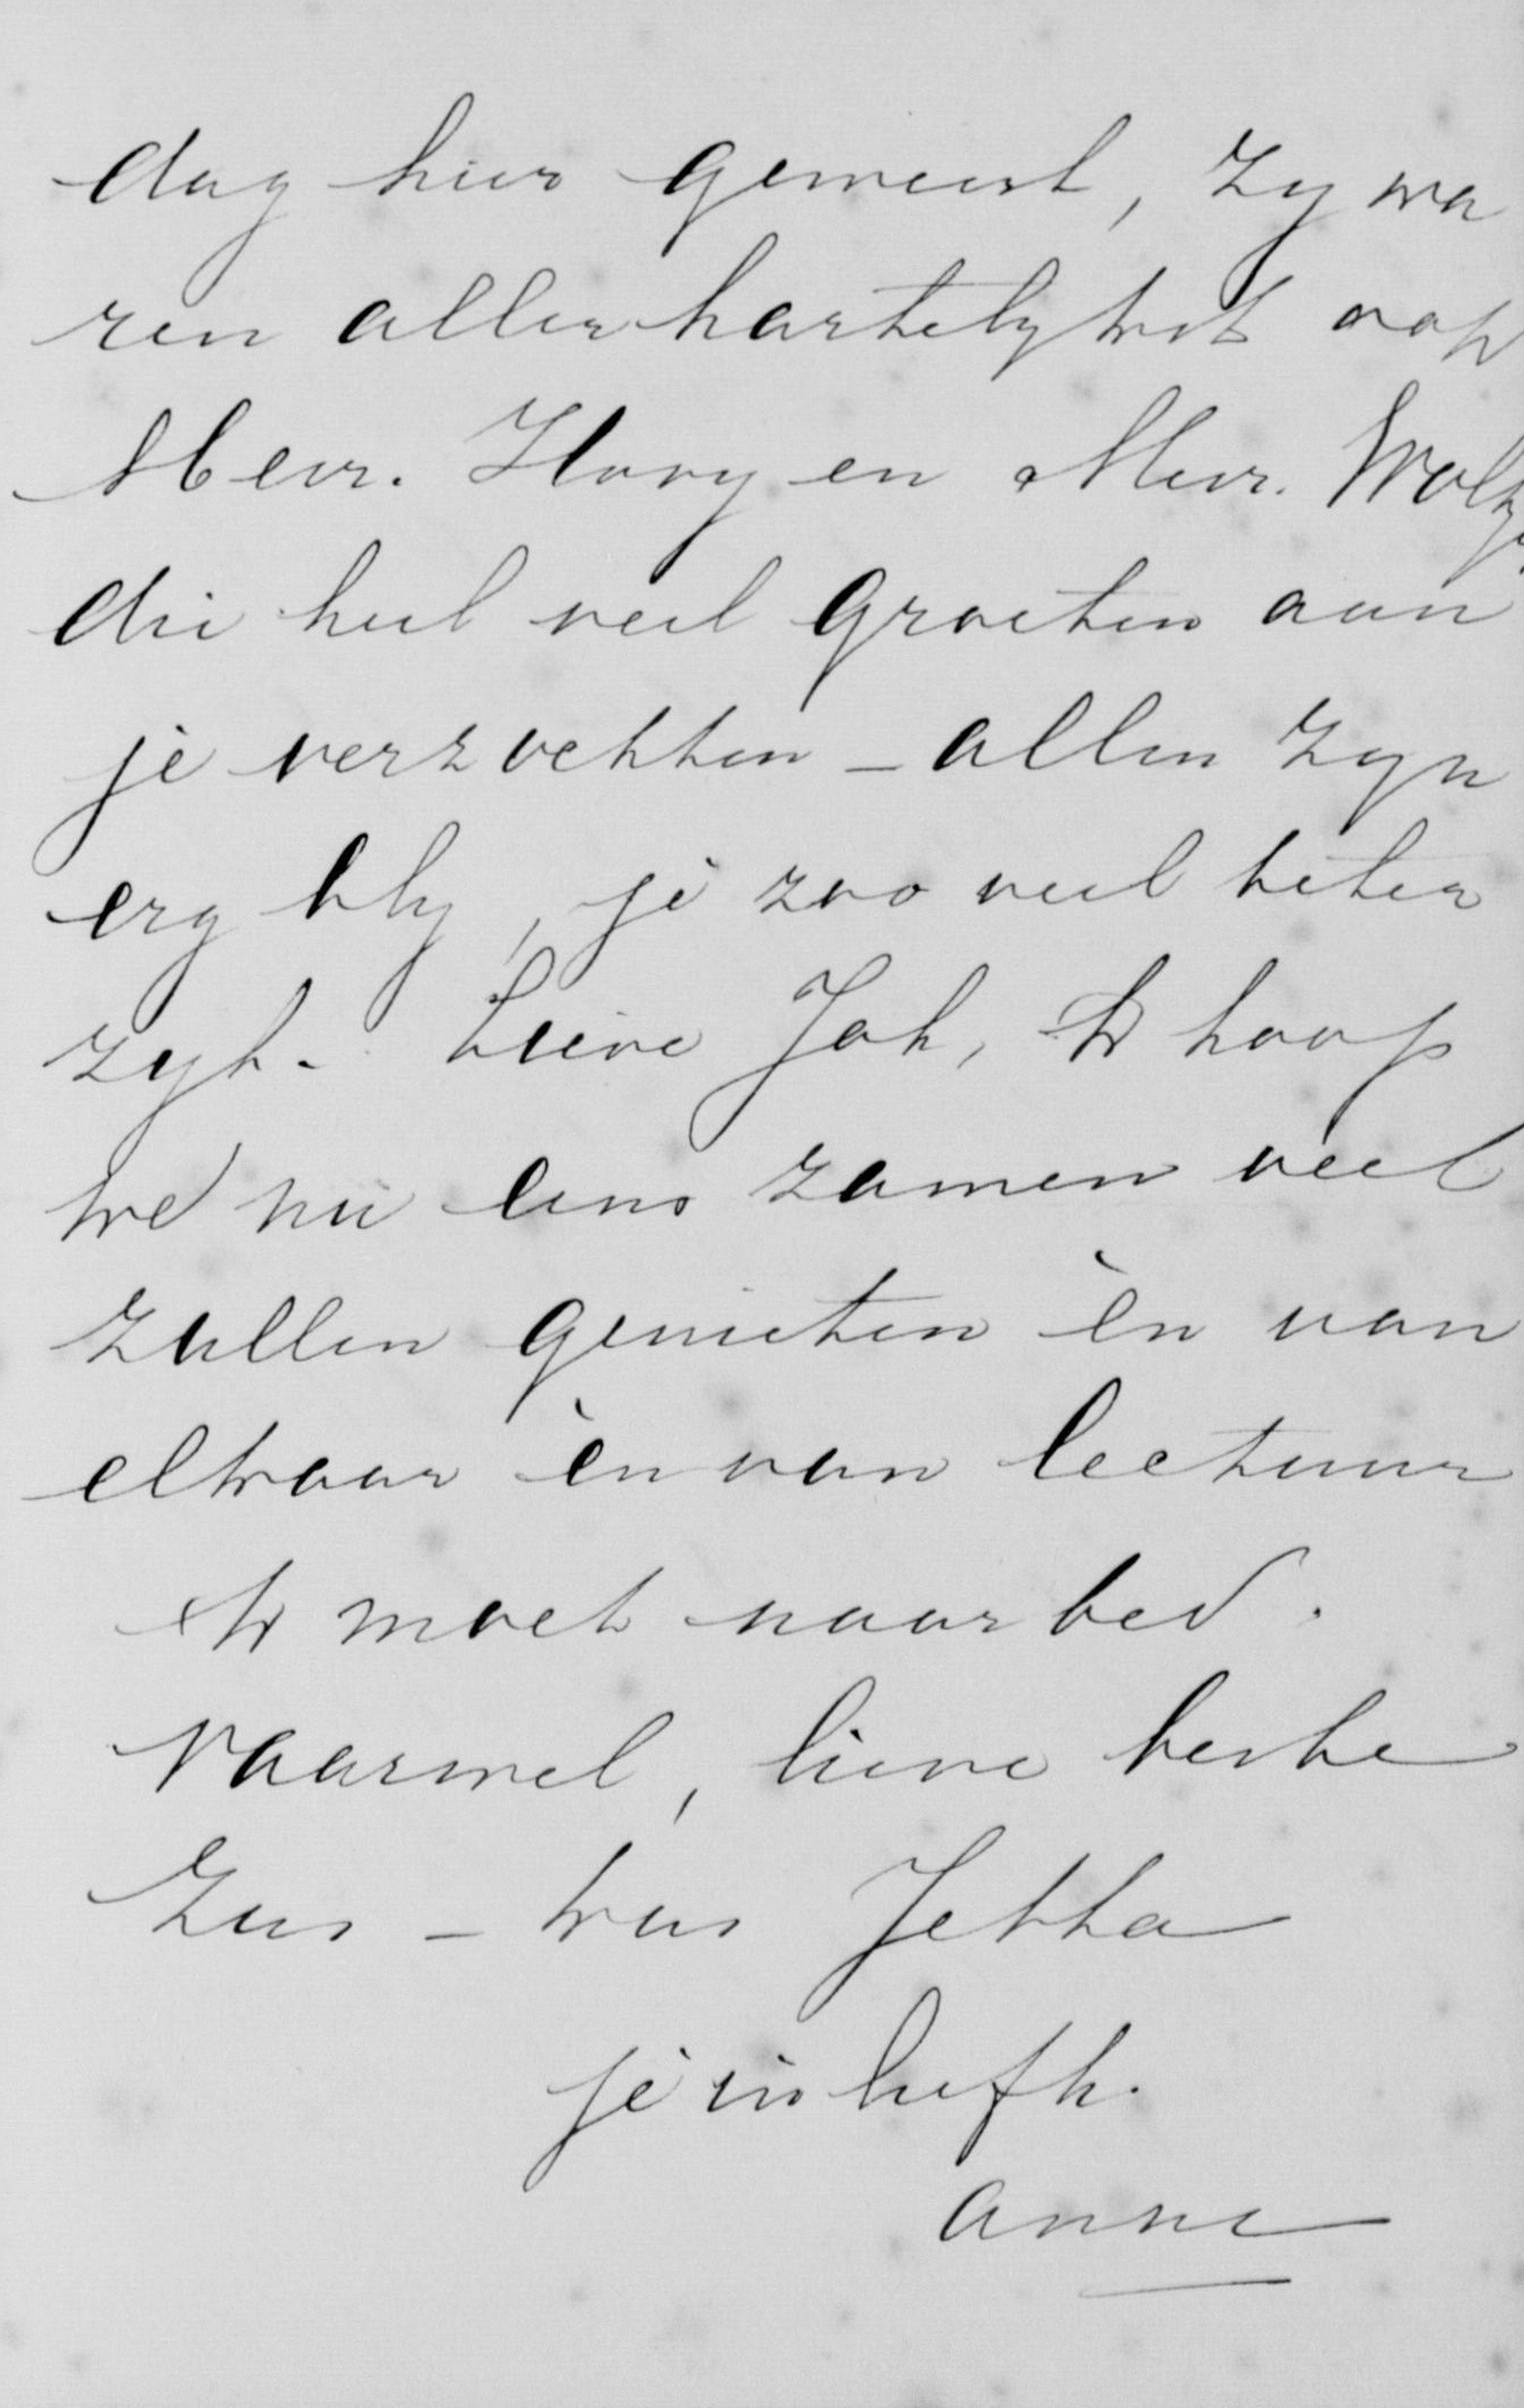 dag hier geweest, zy wa
ren allerhartelykst ook
Mevr. Hovy en Mevr.
die heel veel groeten aan
je verzochten – allen zyn
erg bly, je zoo veel beter
zyt. Lieve Joh, ik hoop
we nu eens zamen veel
zullen genieten èn van
elkaar èn van lectuur
ik moet naar bed.
Vaarwel, lieve beste
Zus – kus Jetta
je in liefh.
Anna